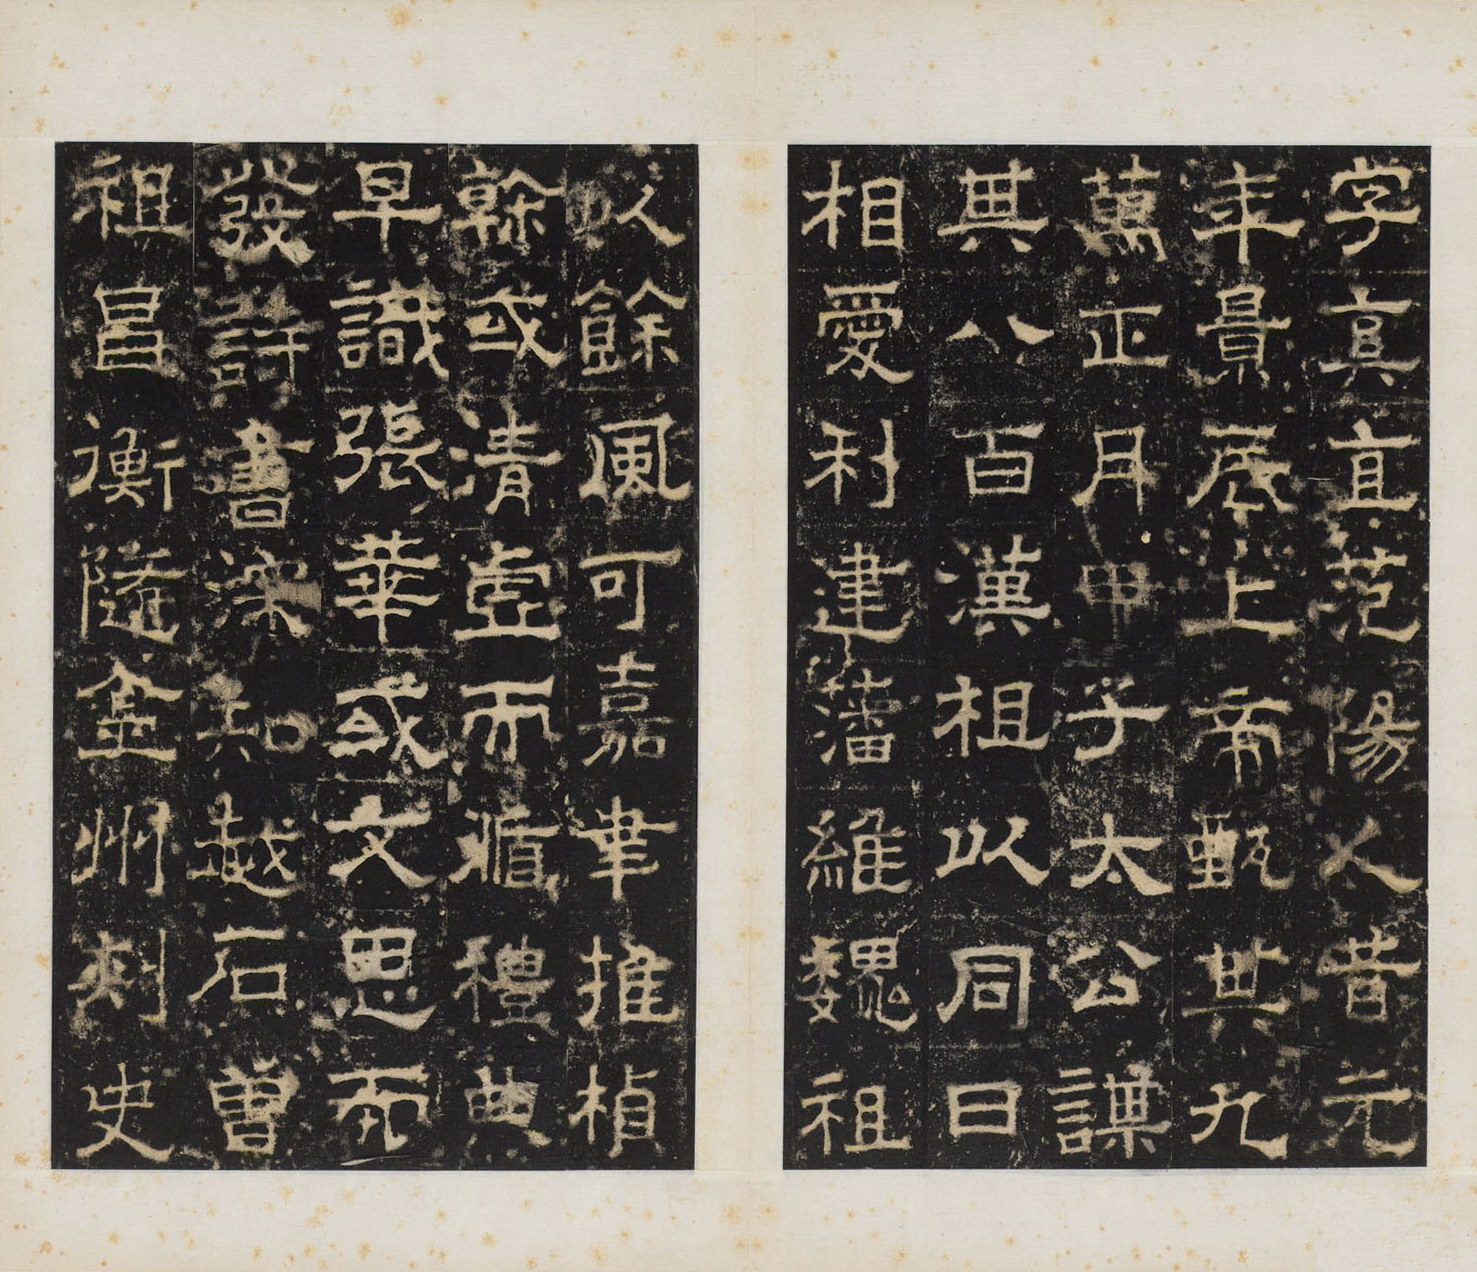 字真直范陽人昔元
年景辰上帝甄其九
萬正月甲子太公謀
其八百漢祖以同日
相愛利建藩維魏祖
以餘風可嘉聿推楨
幹或清虛而循禮典
早識張華或文思而
發詩書深知越石曾
祖昌衡隨金州刺史